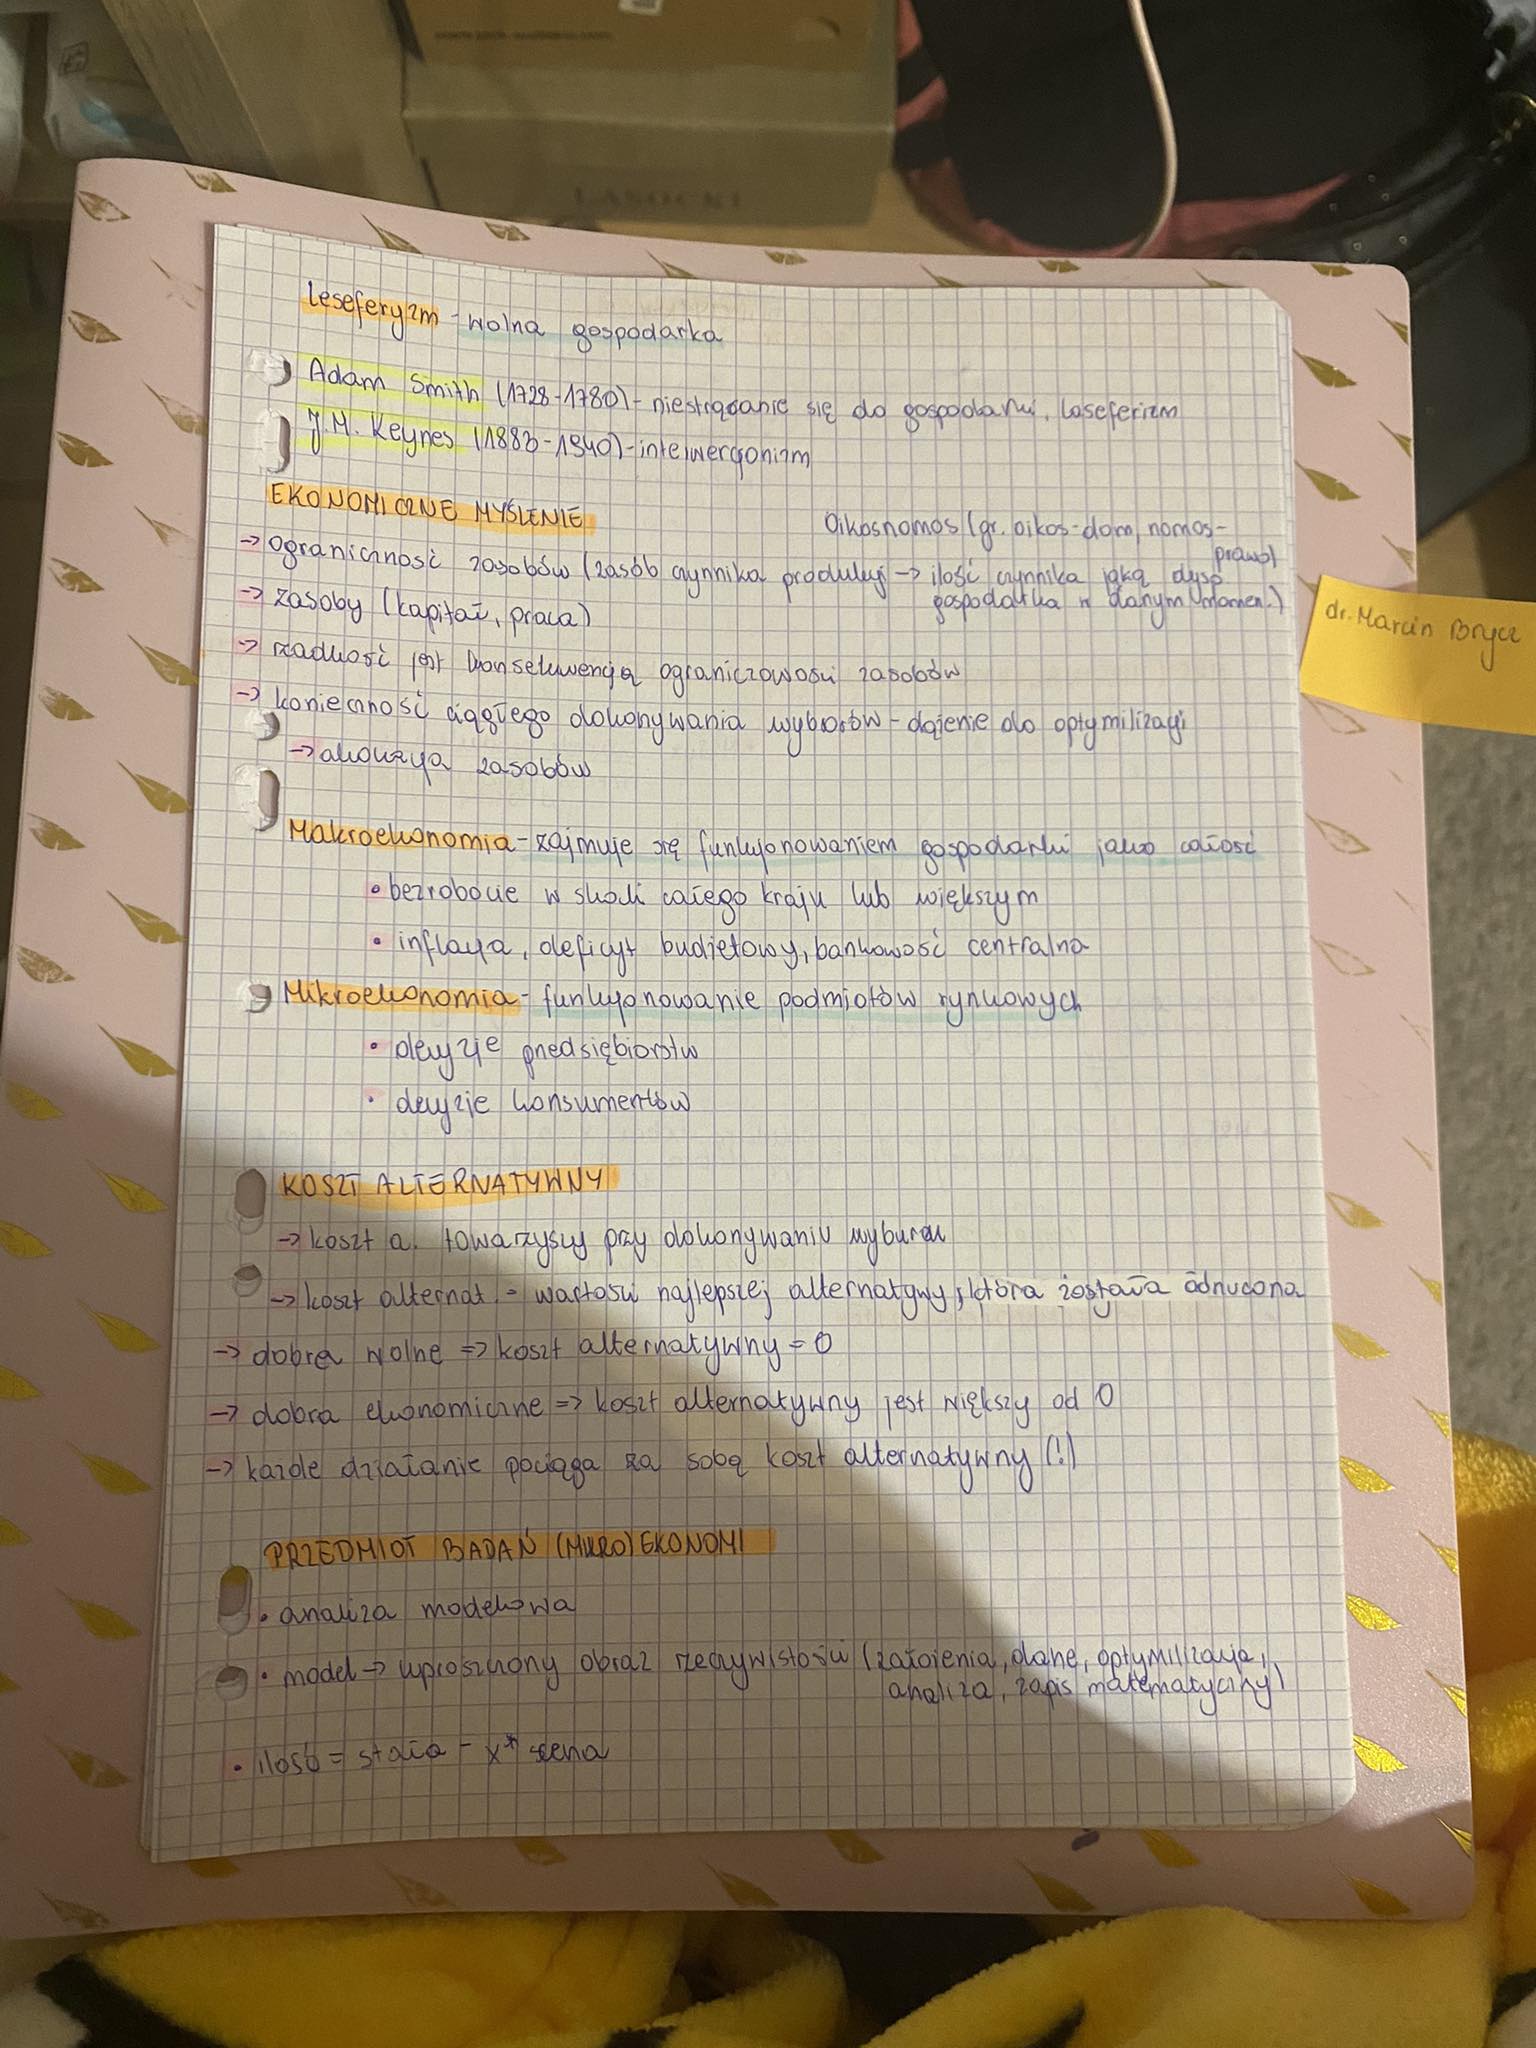 LASOCKI
leseferyzm - wolna gospodarka
Adam Smith (1728-1780) - niestrącanie się do gospodarki, laseferizm
J.M. Keynes (1883-1940) - interwencjonizm
EKONOMICZNE MYŚLENIE
Oikosnomos (gr. oikos-dom, nomos-
prawo)
→ ograniczność zasobów (zasób czynnika produkcji → ilość czynnika jaką dysp.
gospodarka w danym momen.)
→ zasoby (kapitał, praca)
dr. Marcin Brycz
→ rzadkość jest konsekwencją ograniczowości zasobów
→ konieczność ciągłego dokonywania wyborów - dążenie do optymilizacji
→ alokacja zasobów
Makroekonomia - zajmuje się funkcjonowaniem gospodarki jako całość
• bezrobocie w skali całego kraju lub większym
• inflacja, deficyt budżetowy, bankowość centralna
Mikroekonomia - funkcjonowanie podmiotów rynkowych
• decyzje przedsiębiorstw
• decyzje konsumentów
KOSZT ALTERNATYWNY
→ koszt a. towarzyszy przy dokonywaniu wyboru
→ koszt alternat. - wartości najlepszej alternatywy, która została odrzucona
→ dobra wolne => koszt alternatywny = 0
→ dobra ekonomiczne => koszt alternatywny jest większy od 0
→ każde działanie pociąga za sobą koszt alternatywny (!)
PRZEDMIOT BADAŃ (MIKRO) EKONOMI
• analiza modelowa
• model → uproszczony obraz rzeczywistości (założenia, dane, optymilizacja,
analiza, zapis matematyczny)
• ilość = stała - x* cena